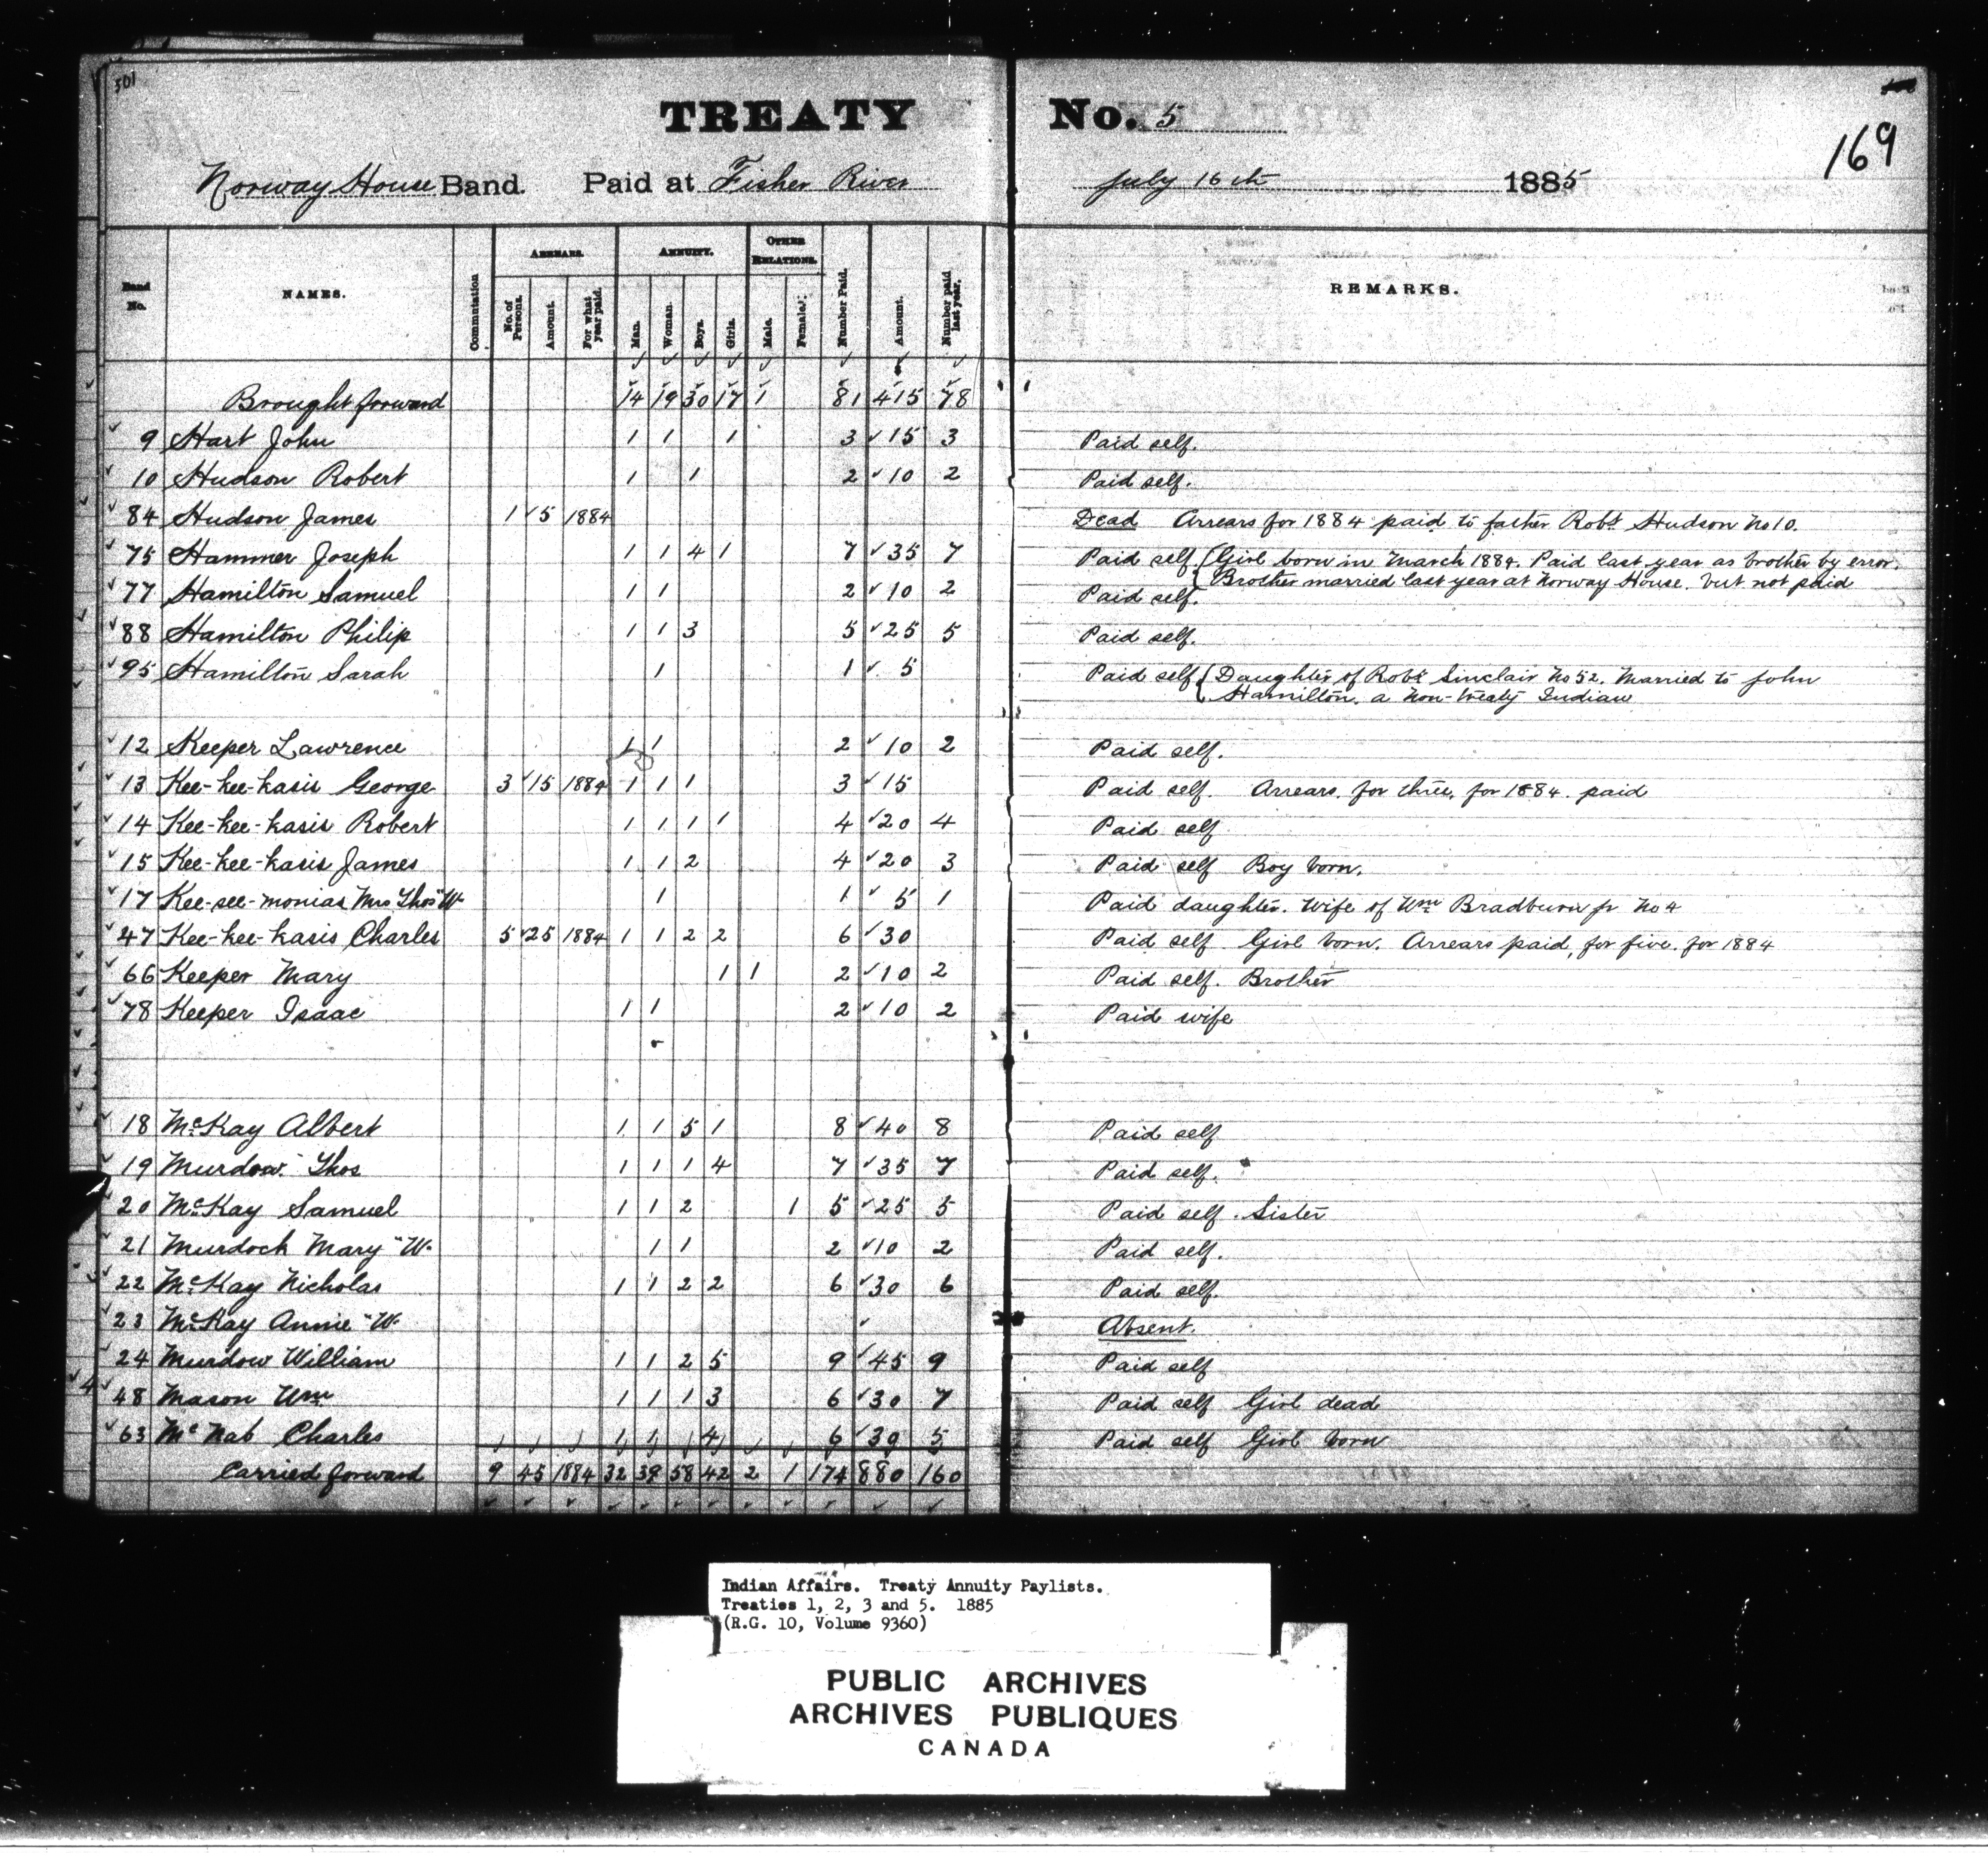 501
TREATY No. 5
169
Norway House Band. Paid at Fisher River July 16th 1885
Band No. NAMES. Commutation ARREARS. ANNUITY. OTHER RELATIONS. Number Paid. Amount. Number paid last year. REMARKS.
No. of Persons. Amount. For what year paid. Man. Woman. Boys. Girls. Male. Female.
Brought forward 14 19 30 17 1 81 415 78
9 Hart John 1 1 1 3 15 3 Paid self.
10 Hudson Robert 1 1 2 10 2 Paid self.
84 Hudson James 1 5 1884 Dead Arrears for 1884 paid to father Robt Hudson No 10.
75 Hammer Joseph 1 1 4 1 7 35 7 Paid self (Girl born in March 1884. Paid last year as brother by error.
Brother married last year at Norway House. but not paid
77 Hamilton Samuel 1 1 2 10 2 Paid self.
88 Hamilton Philip 1 1 3 5 25 5 Paid self.
95 Hamilton Sarah 1 1 5 Paid self (Daughter of Robt Sinclair No 52. Married to John
Hamilton. a Non-treaty Indian
12 Keeper Lawrence 1 1 2 10 2 Paid self.
13 Kee-kee-kasis George 3 15 1884 1 1 1 3 15 Paid self. Arrears. for three, for 1884. paid
14 Kee-kee-kasis Robert 1 1 1 1 4 20 4 Paid self
15 Kee-kee-kasis James 1 1 2 4 20 3 Paid self Boy born.
17 Kee-see-monias Mrs Thos "W" 1 1 5 1 Paid daughter. Wife of Wm Bradburn jr No 4
47 Kee-kee-kasis Charles 5 25 1884 1 1 2 2 6 30 Paid self Girl born. Arrears paid, for five. for 1884
66 Keeper Mary 1 1 2 10 2 Paid self. Brother
78 Keeper Isaac 1 1 2 10 2 Paid wife
18 McKay Albert 1 1 5 1 8 40 8 Paid self
19 Murdow Thos 1 1 1 4 7 35 7 Paid self.
20 McKay Samuel 1 1 2 1 5 25 5 Paid self. Sister
21 Murdoch Mary "W. 1 1 2 10 2 Paid self.
22 McKay Nicholas 1 1 2 2 6 30 6 Paid self.
23 McKay Annie "W. Absent.
24 Murdow William 1 1 2 5 9 45 9 Paid self
48 Mason Wm 1 1 1 3 6 30 7 Paid self Girl dead
63 McNab Charles 1 1 4 6 30 5 Paid self Girl born
Carried forward 9 45 1884 32 39 58 42 2 1 174 880 160
Indian Affairs. Treaty Annuity Paylists.
Treaties 1, 2, 3 and 5. 1885
(R.G. 10, Volume 9360)
PUBLIC ARCHIVES
ARCHIVES PUBLIQUES
CANADA